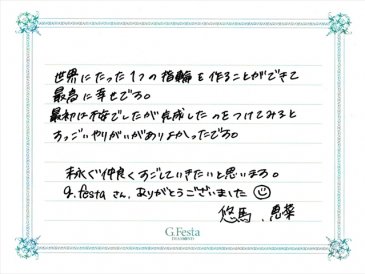 世界にたった1つの指輪を作ることができて
最高に幸せです。
最初は不安でしたが完成したのをつけてみると
すっごいやりがいがありよかったです。
末永く仲良くすごしていきたいと思います。
g.festaさん、ありがとうございました
悠馬、恵菜
G.Festa
DIAMOND